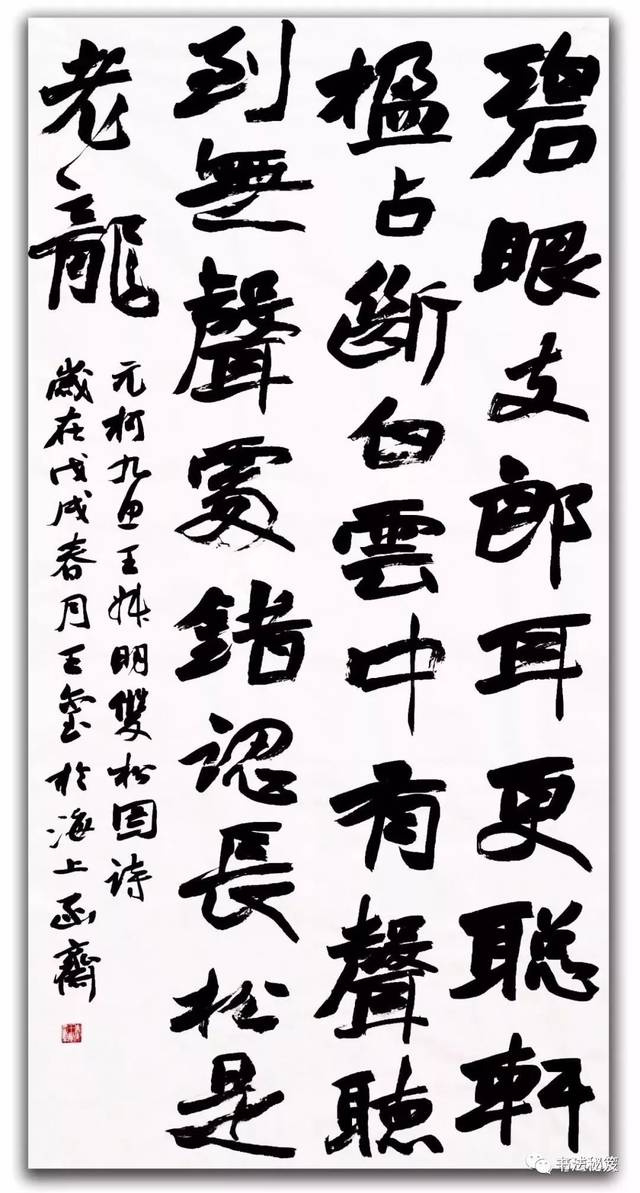 碧眼支郎耳更聪軒
楹占斷白雲中有聲聴
到無聲處錯認長松是
老龍
元柯九思王叔明雙松图诗
歲在戊戌春月王玺於海上函齋
书法秘笈